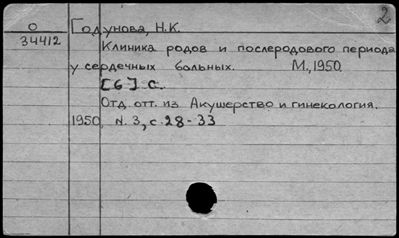 2
О Годунова, Н.К.
34412
Клиника родов и послеродового периода
у сердечных больных. М., 1950.
[6] с.
Отд. отт. из. Акушерство и гинекология.
1950, N. 3, с. 28-33